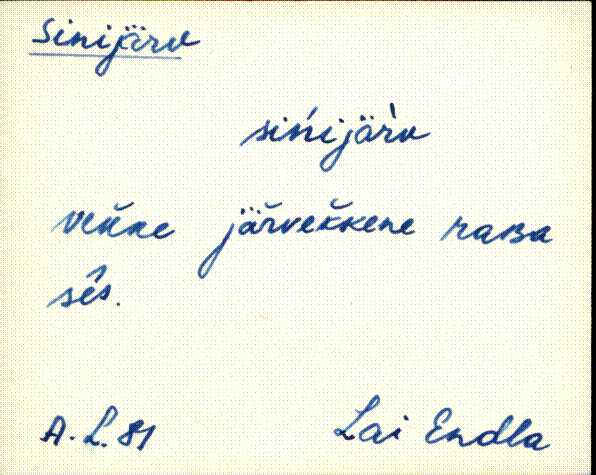 Sinijärv
sińijäŕv
veikene järvekkene raba
śes.
A. L. 81 Lai Endla